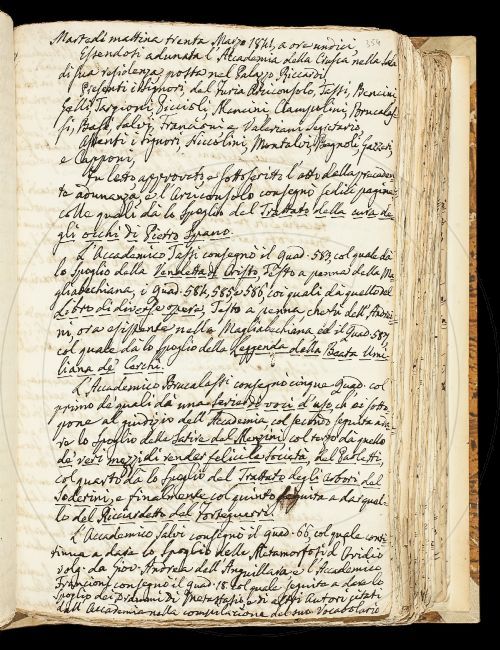 354
Martedì mattina trenta Marzo 1841, a ore undici,
Essendosi adunata l'Accademia della Crusca nella Sala
di sua residenza, posta nel Palazzo Riccardi
Presenti i Signori, del Furia Arciconsolo, Tassi, Bencini
Zelli, Targioni, Piccioli, Mencini, Ciampolini, Brucalas-
si, Basi, Salvi, Francioni e Valeriani Segretario,
Assenti i Signori Niccolini, Montalvi, Bagnoli, Gazzeri,
e Capponi,
Fu letto approvato e sottoscritto l'atto della preceden-
te adunanza, e l'Arciconsolo consegnò sedici pagine
colle quali dà lo Spoglio del Trattato della cura de-
gli occhi di Pietro Spano.
L'Accademico Tassi consegnò il Quad. 583, col quale dà
lo Spoglio della Vendetta di Cristo Testo a penna della Ma-
gliabechiana, i Quad. 584, 585 e 586, coi quali dà quello del
Libro di diverse opere, Testo a penna che fu dell'Andrei-
ni, ora esistente nella Magliabechiana ed il Quad. 587,
col quale dà lo Spoglio della Leggenda della Beata Umi-
liana de' Cerchi.
L'Accademico Brucalassi consegnò cinque Quad. col
primo de' quali dà una serie di voci d'uso, ch'ei sotto-
pone al giudizio dell'Accademia col secondo seguita a da-
re lo Spoglio delle Satire del Menzini, col terzo dà quello
de' veri mezzi di render felici le società del Paoletti,
col quarto dà lo Spoglio del Trattato degli arbori del
Soderini, e finalmente col quinto seguita a dar quel-
lo del Ricciardetto del Forteguerri.
L'Accademico Salvi consegnò il quad. 66, col quale conti-
nua a dare lo Spoglio delle Metamorfosi d'Ovidio
volg. da Giov. Andrea dell'Anguillara e l'Accademico
Francioni consegnò il quad. 18. col quale seguita a dare lo
Spoglio dei Drammi di Metastasio, e di altri Autori citati
dall'Accademia nella compilazione del suo Vocabolario